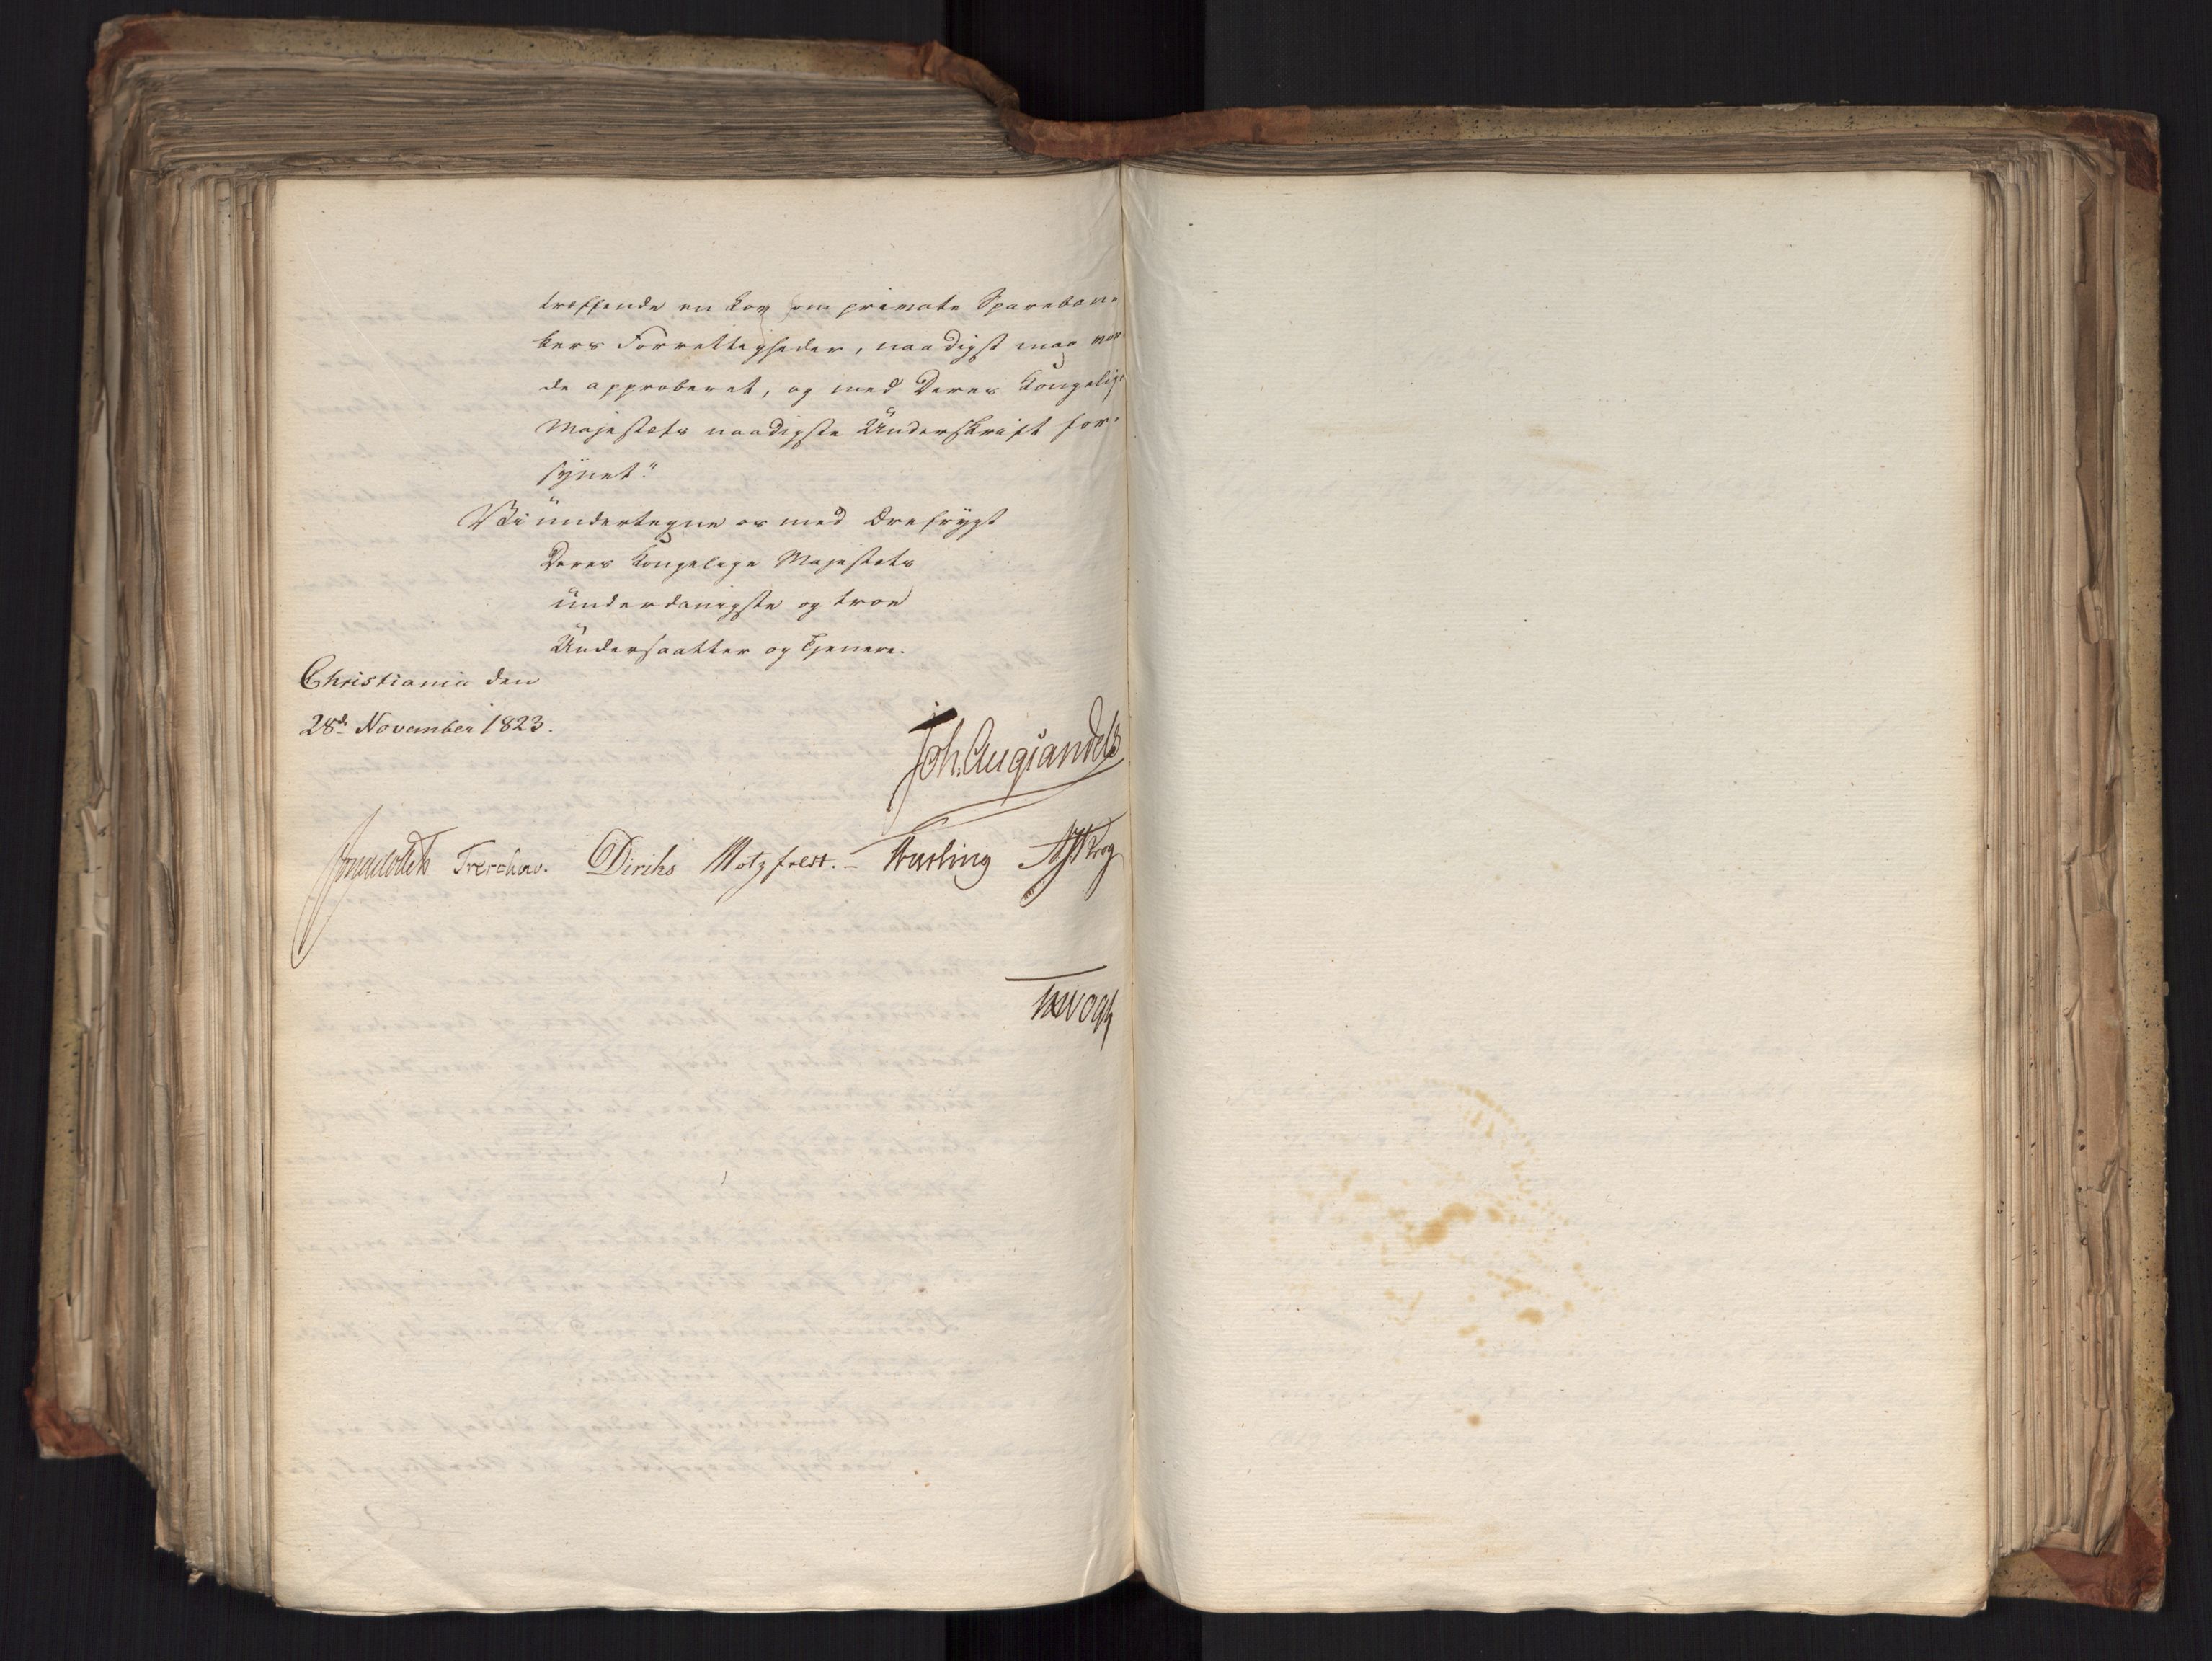 treffende en Lov om private Spareban-
kers Forrettigheder, naadigst maa vor-
de approberet, og med Deres Kongelige
Majestæts naadigste Underskrift for-
synet."
Vi undertegne os med Ærefrygt
Deres Kongelige Majestæts
underdanigste og troe
Undersaatter og Tjenere.
Christiania den
28de November 1823.
Joh. Aug Sandels
Sommerhielm Treschow. Diriks Motzfeldt. Fasting Krog
Vogt